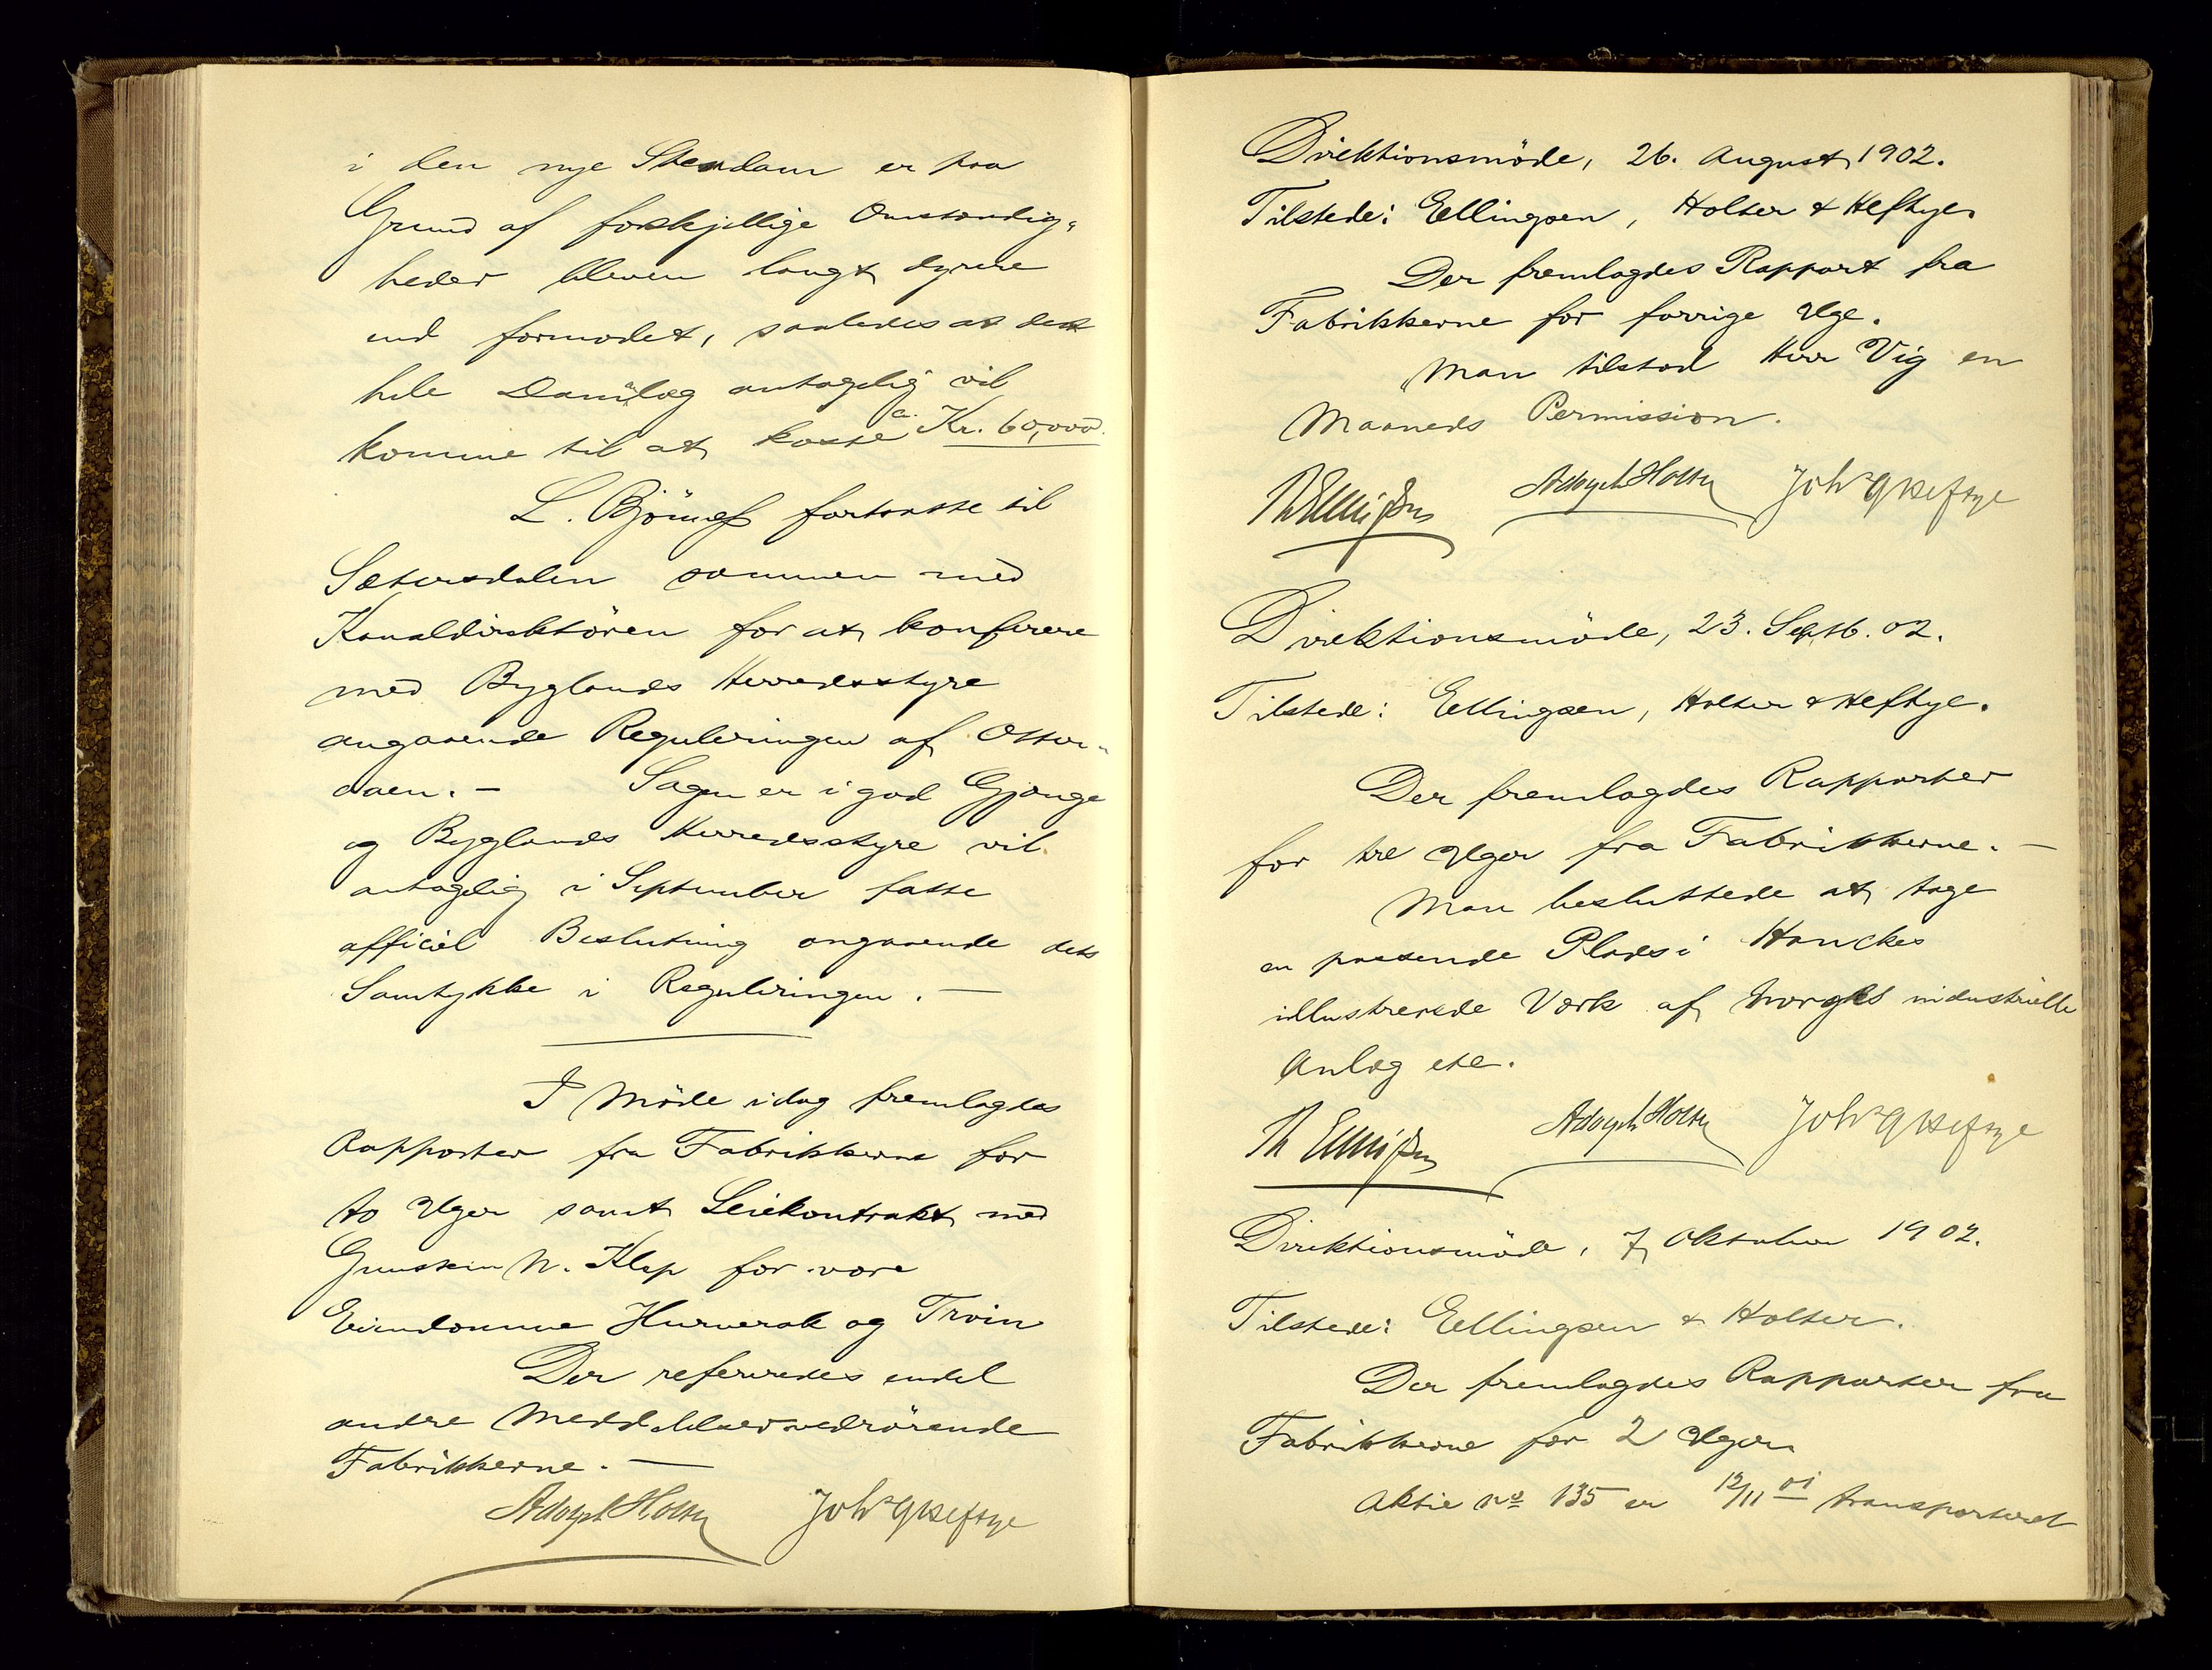 i den nye Stendam er paa
Grund af forskjellige Omstændig-
heder bleven langt dyrere
end formodet, saaledes at det
hele Damlæg antagelig vil
komme til at koste ca. Kr. 60,000.
L. Björnes fortsatte til
Sætersdalen sammen med
Kanaldirektören for at konferere
med Byglands Herredsstyre
angaaende Reguleringen af Otter-
aaen. — Sagen er i god Gjænge
og Byglands Herredsstyre vil
antagelig i September fatte
officiel Beslutning angaaende dets
Samtykke i Reguleringen. —
I Möde idag fremlagdes
Rapporter fra Fabrikkerne for
to Uger samt Leiekontrakt med
N. Klep for vore
Eiendomme Hurverak og Troin
Der refereredes endel
andre Meddelelser vedrörende
Fabrikkerne. —
Adolph Holter Joh. Heftye
Direktionsmöde, 26. August 1902.
Tilstede: Ellingsen, Holter & Heftye.
Der fremlagdes Rapport fra
Fabrikkerne for forrige Uge.
Man tilstod Herr Vig en
Maaneds Permission.
Th Ellingsen Adolph Holter Joh. Heftye
Direktionsmöde, 23. Septb. 02.
Tilstede: Ellingsen, Holter & Heftye.
Der fremlagdes Rapporter
for tre Uger fra Fabrikkerne. —
Man besluttede at tage
en passende Plads i Hanckes
illustrerede Værk af Norges industrielle
Anlæg etc.
Th Ellingsen Adolph Holter Joh. Heftye
Direktionsmöde, 7 Oktober 1902.
Tilstede: Ellingsen & Holter.
Der fremlagdes Rapporter fra
Fabrikkerne for 2 Uger.
Aktie No 135 er 12/11 01 transporteret